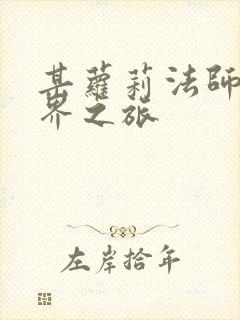 某蘿莉法師
界之旅
左岸拾年